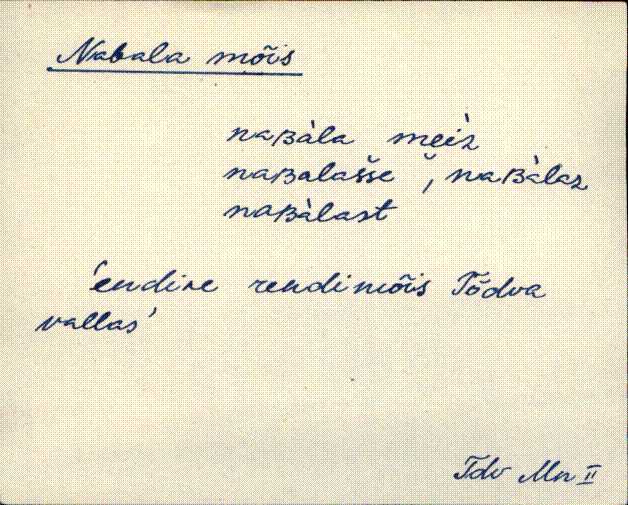 Nabala mõis
naʙàla meìz
naʙalašse ˇ, naʙàlaz
naʙàlast
'endine rendimõis Tõdva
vallas'
Tdv Mn II